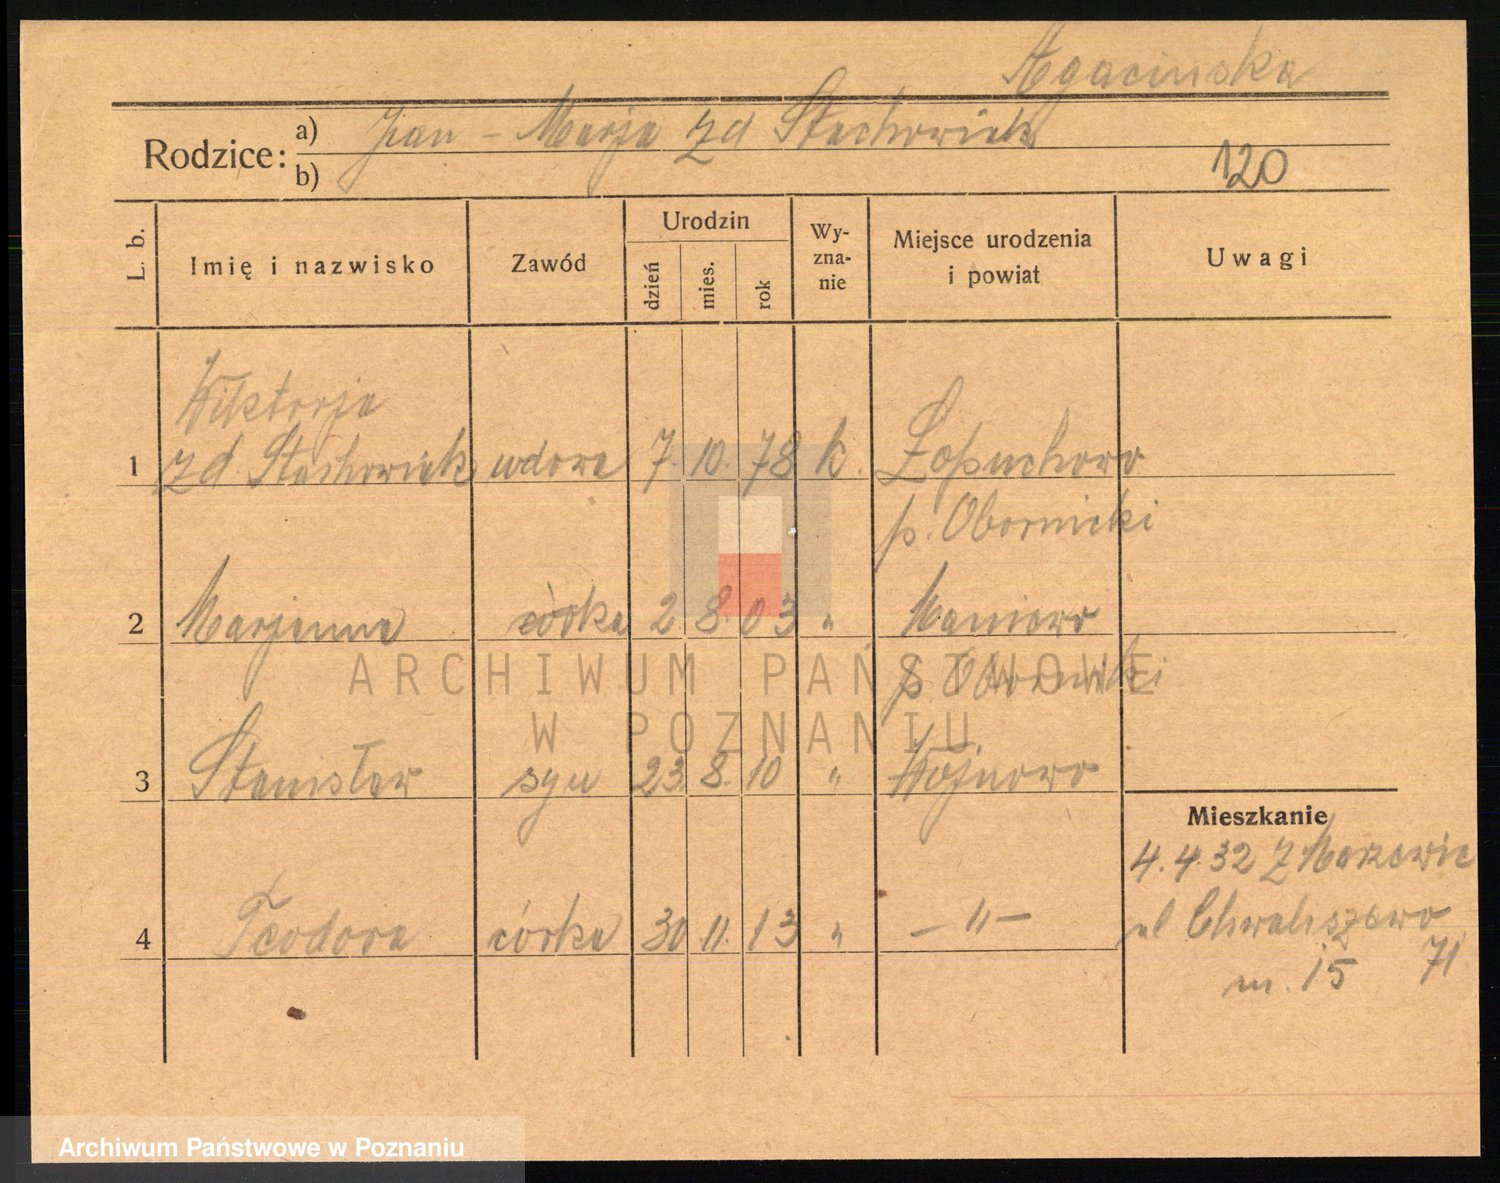 Agacińska
Rodzice: a) Jan - Marja zd Stachowiak
b)
120
L. b. Imię i nazwisko Zawód Urodzin dzień mies. rok Wyznanie Miejsce urodzenia i powiat Uwagi
Wiktorja
1 zd. Stachowiak wdowa 7. 10. 78 k. Łopuchowo
p. Obornicki
2 Marjanna córka 2 8. 03 " Maniewo
p. Obornicki
3 Stanisław syn 23. 8. 10 " Wojnowo
Mieszkanie
4.4.32 Z
4 Teodora córka 30 11. 13 " — " —
ul Chwaliszewo
71
m. 15
ARCHIWUM PAŃSTWOWE
W POZNANIU
Archiwum Państwowe w Poznaniu